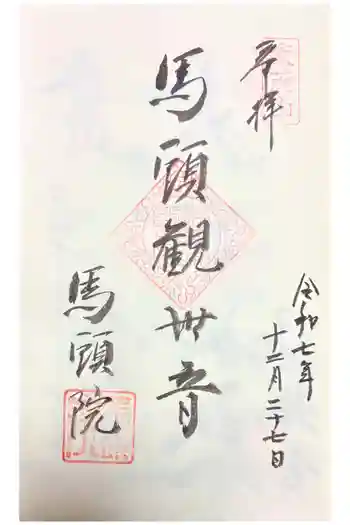 奉拝
馬頭観世音
令和七年
十二月二十七日
馬頭院